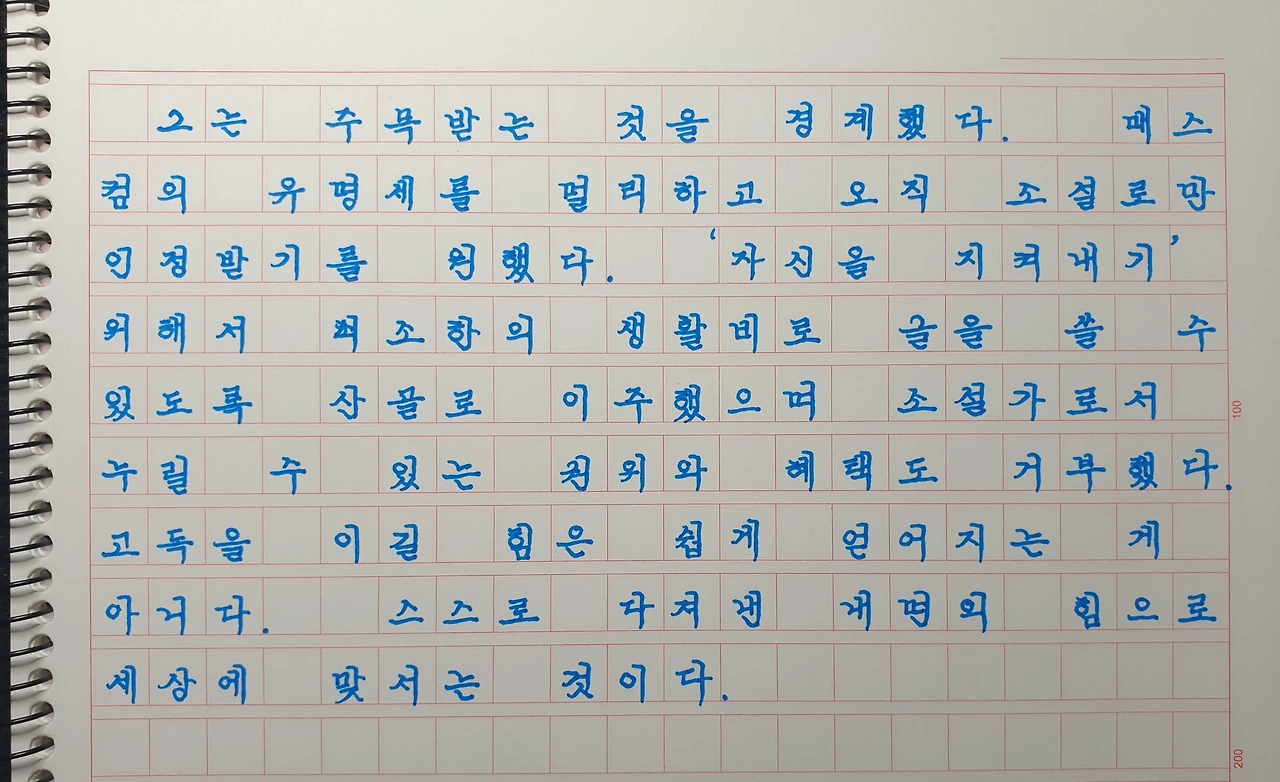 그는 주목받는 것을 경계했다. 매스
컴의 유명세를 멀리하고 오직 소설로만
인정받기를 원했다. ‘자신을 지켜내기’
위해서 최소한의 생활비로 글을 쓸 수
있도록 산골로 이주했으며 소설가로서
누릴 수 있는 권위와 혜택도 거부했다.
고독을 이길 힘은 쉽게 얻어지는 게
아니다. 스스로 다져낸 내면의 힘으로
세상에 맞서는 것이다.
100
200